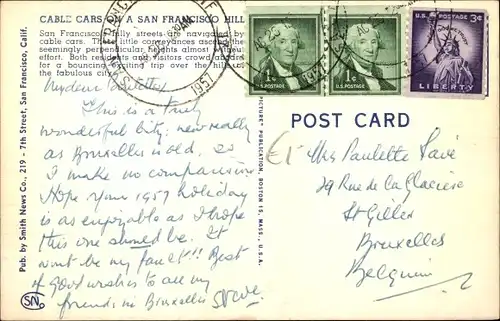 CABLE CARS ON A SAN FRANCISCO HILL
San Francisco's hilly streets are navigated by
cable cars. These little conveyances ascend the
seemingly perpendicular heights almost without
effort. Both residents and visitors crowd aboard
for a bouncing, exciting trip over the hills of
the fabulous city.
SAN FRANCISCO
30 AM
1957
1¢
U.S. POSTAGE
1¢
U.S. POSTAGE
U.S. POSTAGE 3¢
LIBERTY
My dear Paulette,
This is a truly
wonderful city, new really
as Bruxelles is old. so
I make no comparison
Hope your 1957 holiday
is as enjoyable as I hope
this one should be. It
won't be my fault!!! Best
of good wishes to all my
friends in Bruxelles Steve
Pub. by Smith News Co., 219 - 7th Street, San Francisco, Calif.
SN
PICTURE" PUBLICATION, BOSTON 15, MASS., U.S.A.
POST CARD
€5
Miss Paulette Pavé
29 Rue de la Glacière
St Gilles
Bruxelles
Belgium